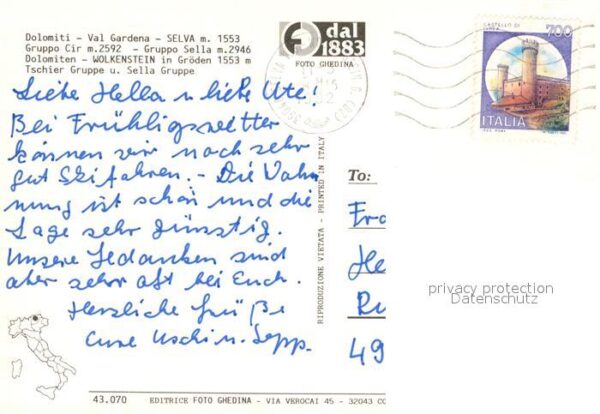 Dolomiti - Val Gardena - SELVA m. 1553
Gruppo Cir m.2592 - Gruppo Sella m.2946
Dolomiten - WOLKENSTEIN in Gröden 1553 m
Tschier Gruppe u. Sella Gruppe
dal
1883
FOTO GHEDINA
CASTELLO DI
700
ITALIA
Liebe Hella u liebe Ute!
Bei Frühligswetter
können wir noch sehr
gut Skifahren. - Die Woh
nung ist schön und die
Lage sehr günstig.
Unsere Gedanken sind
aber sehr oft bei Euch.
Herzliche Grüße
Eure Uschi u. Sepp.
RIPRODUZIONE VIETATA - PRINTED IN ITALY
To:
Fra
He
Ru
49
privacy protection
Datenschutz
43.070 EDITRICE FOTO GHEDINA - VIA VEROCAI 45 - 32043 CO